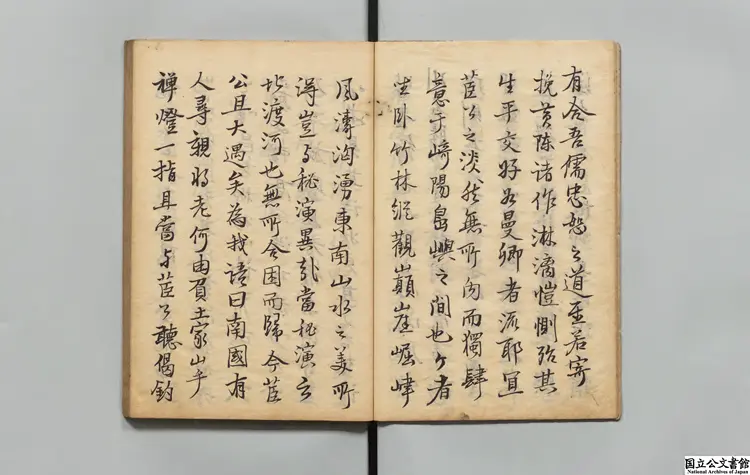 有合吾儒忠恕之道至若寄
挽黄陳诸作淋漓愷惻殆其
生平交好如曼卿者流耶宜
茝公之淡然無所向而獨肆
意于崎陽島嶼之間也今者
坐卧竹林縱觀巔崖崛峍
風濤洶湧東南山水之美所
得豈与秘演異哉當秘演之
北渡河也無所合困而歸今茝
公且大遇矣為我語曰南國有
人尋親將老何由負土家山乎
禅燈一指且當与茝公聽偈釣
国立公文書館
National Archives of Japan